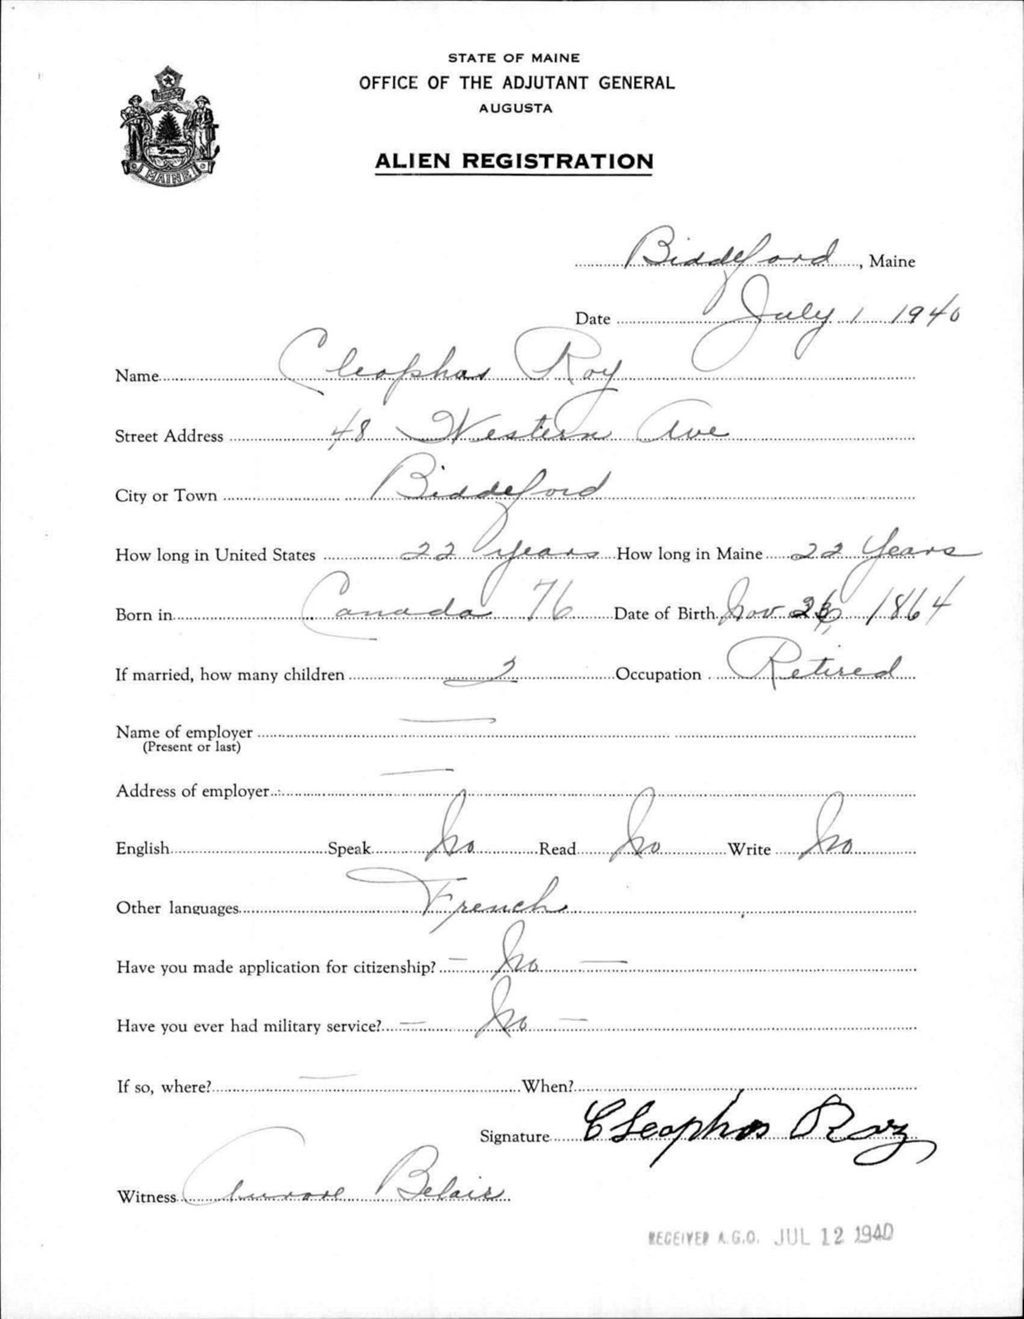 STATE OF MAINE
OFFICE OF THE ADJUTANT GENERAL
AUGUSTA
ALIEN REGISTRATION
MAINE
Biddeford, Maine
Date July 1 1940
Name Cleophas Roy
Street Address 48 Western Ave
City or Town Biddeford
How long in United States 22 years How long in Maine 22 Years
Born in Canada 76 Date of Birth Nov 1864
If married, how many children 2 Occupation Retired
Name of employer —
(Present or last)
Address of employer —
English Speak No Read No Write No
Other languages French
Have you made application for citizenship? — No —
Have you ever had military service? — No —
If so, where? — When?
Signature Cleophas Roy
Witness Aurore Belair
RECEIVED A.G.O. JUL 12 1940